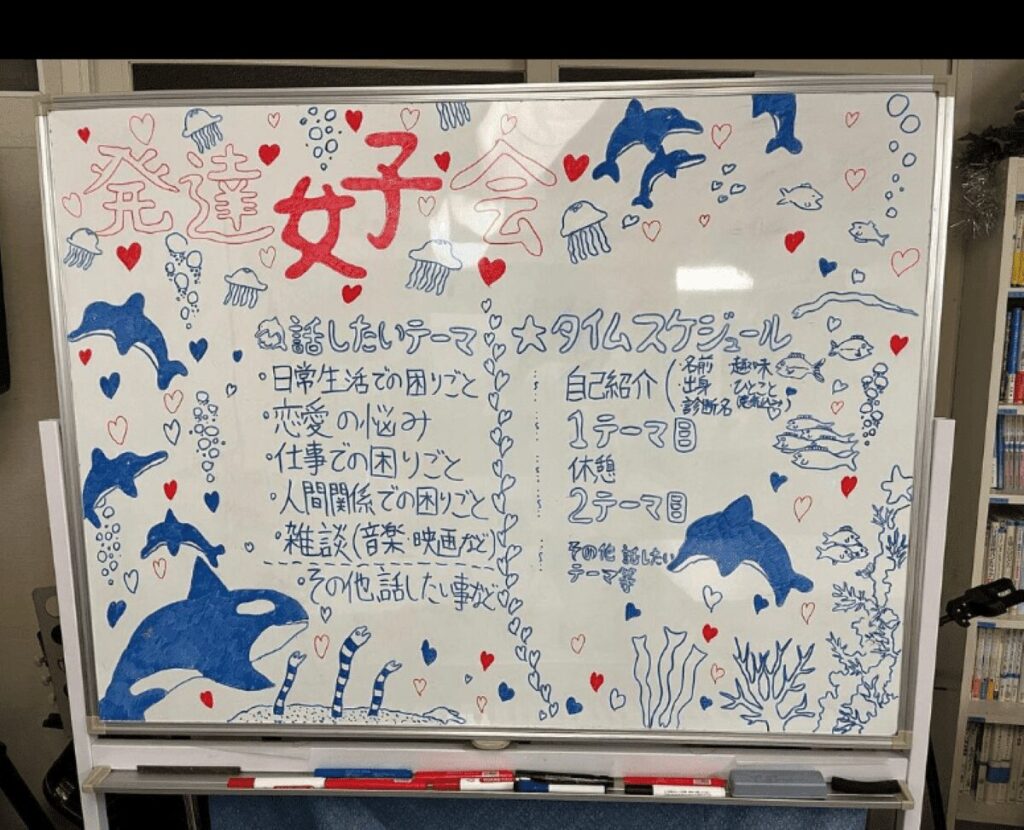 発達女子会
話したいテーマ
・日常生活での困りごと
・恋愛の悩み
・仕事での困りごと
・人間関係での困りごと
・雑談(音楽・映画など)
・その他、話したい事など
☆タイムスケジュール
自己紹介(名前 趣味
出身 ひとこと
診断名
1テーマ目
休憩
2テーマ目
その他 話したい
テーマ等